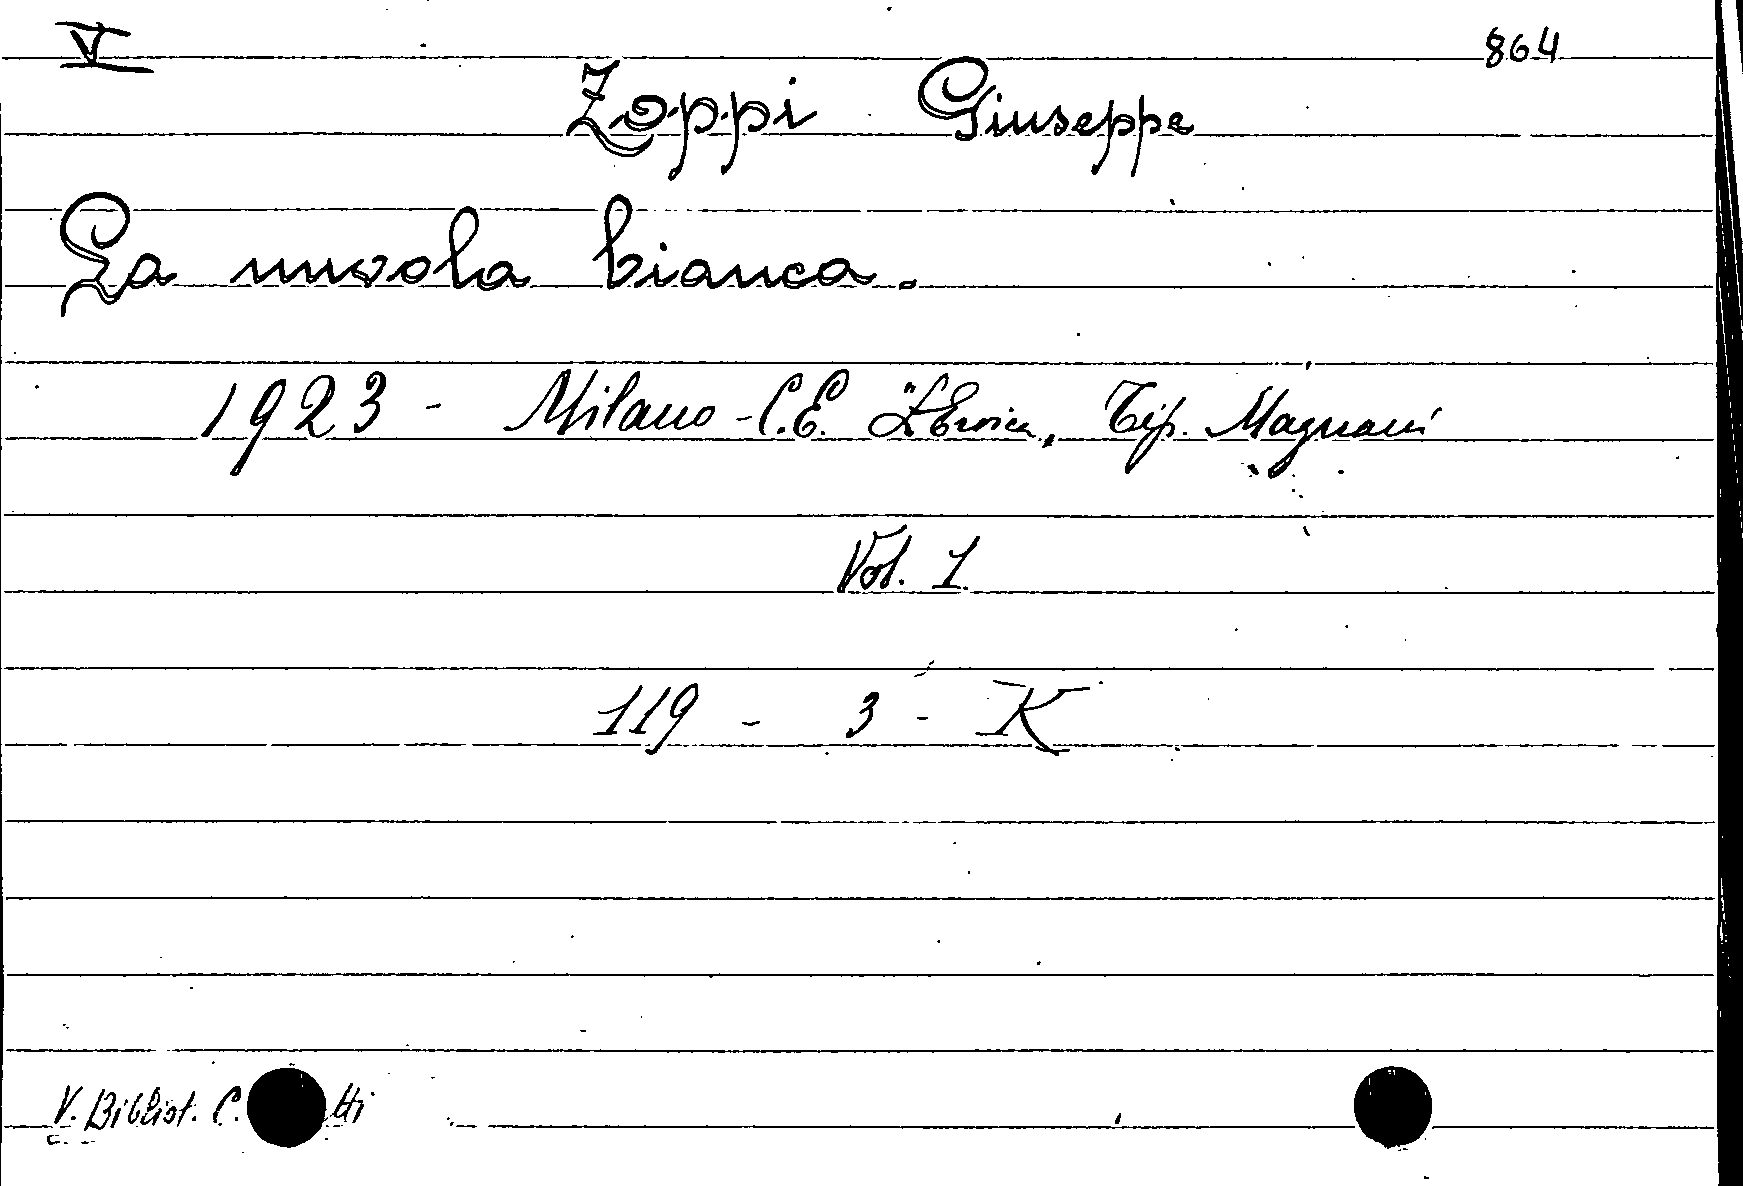 V 864
Zoppi Giuseppe
La nuvola bianca.
1923 - Milano - C.E. "L'Eroica, Tip. Magnani
Vol. 1
119 - 3 - K
V. Bibliot. C.